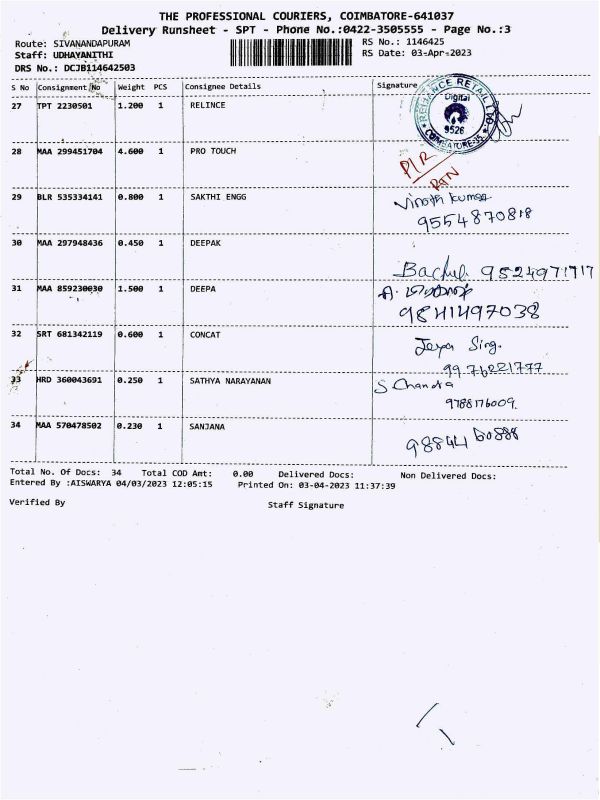 THE PROFESSIONAL COURIERS, COIMBATORE-641037
Delivery Runsheet - SPT - Phone No.:0422-3505555 - Page No.:3
Route: SIVANANDAPURAM RS No.: 1146425
Staff: UDHAYANITHI RS Date: 03-Apr-2023
DRS No.: DCJB114642503
S No Consignment No Weight PCS Consignee Details Signature
27 TPT 2230501 1.200 1 RELINCE
RELIANCE RETAIL LTD
Digital
9526
COIMBATORE-35
28 MAA 299451704 4.600 1 PRO TOUCH
P/R
RTN
29 BLR 535334141 0.800 1 SAKTHI ENGG Vinoth kumar
9554870818
30 MAA 297948436 0.450 1 DEEPAK
9524971717
31 MAA 859230030 1.500 1 DEEPA
9841497038
32 SRT 681342119 0.600 1 CONCAT Jeya Sing.
99.76221777
33 HRD 360043691 0.250 1 SATHYA NARAYANAN S Chandra
9788176009.
34 MAA 570478502 0.230 1 SANJANA
98844 60888
Total No. Of Docs: 34 Total COD Amt: 0.00 Delivered Docs: Non Delivered Docs:
Entered By :AISWARYA 04/03/2023 12:05:15 Printed On: 03-04-2023 11:37:39
Verified By Staff Signature